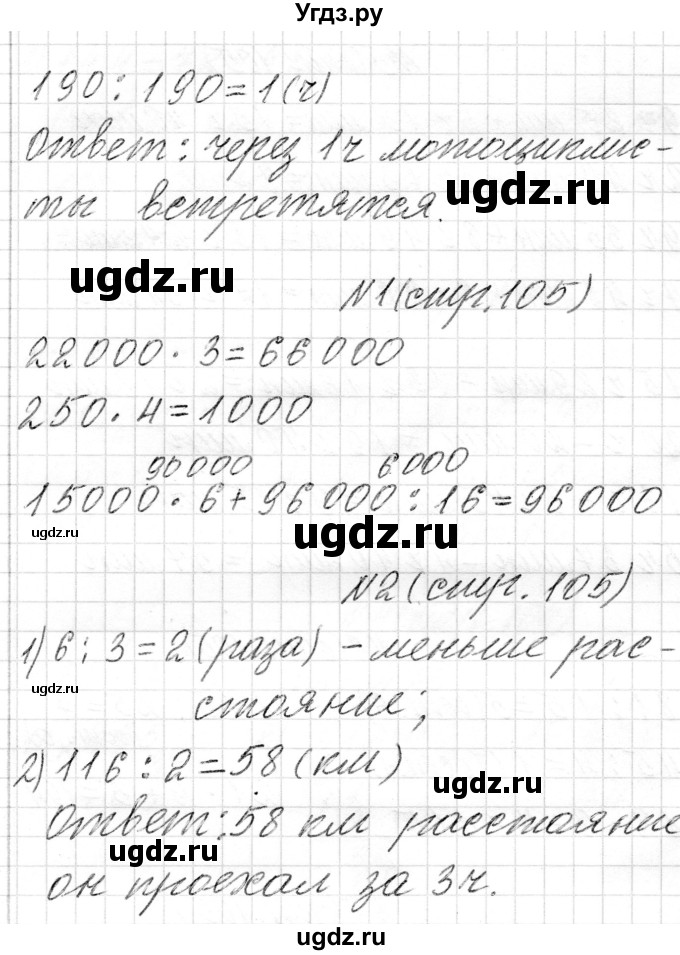 Угдз.ру
190 : 190 = 1 (ч)
Ответ: через 1 ч мотоциклис-
ты встретятся.
ugdz.ru
ugdz.ru
№1 (стр. 105)
22000 · 3 = 66 000
250 · 4 = 1000
90 000 6 000
15000 · 6 + 96 000 : 16 = 96 000
ugdz.ru
ugdz.ru
№2 (стр. 105)
1) 6 : 3 = 2 (раза) – меньше рас-
ugdz.ru
стояние;
2) 116 : 2 = 58 (км)
ugdz.ru
Ответ: 58 км расстояние
ugdz.ru
он проехал за 3 ч.
ugdz.ru